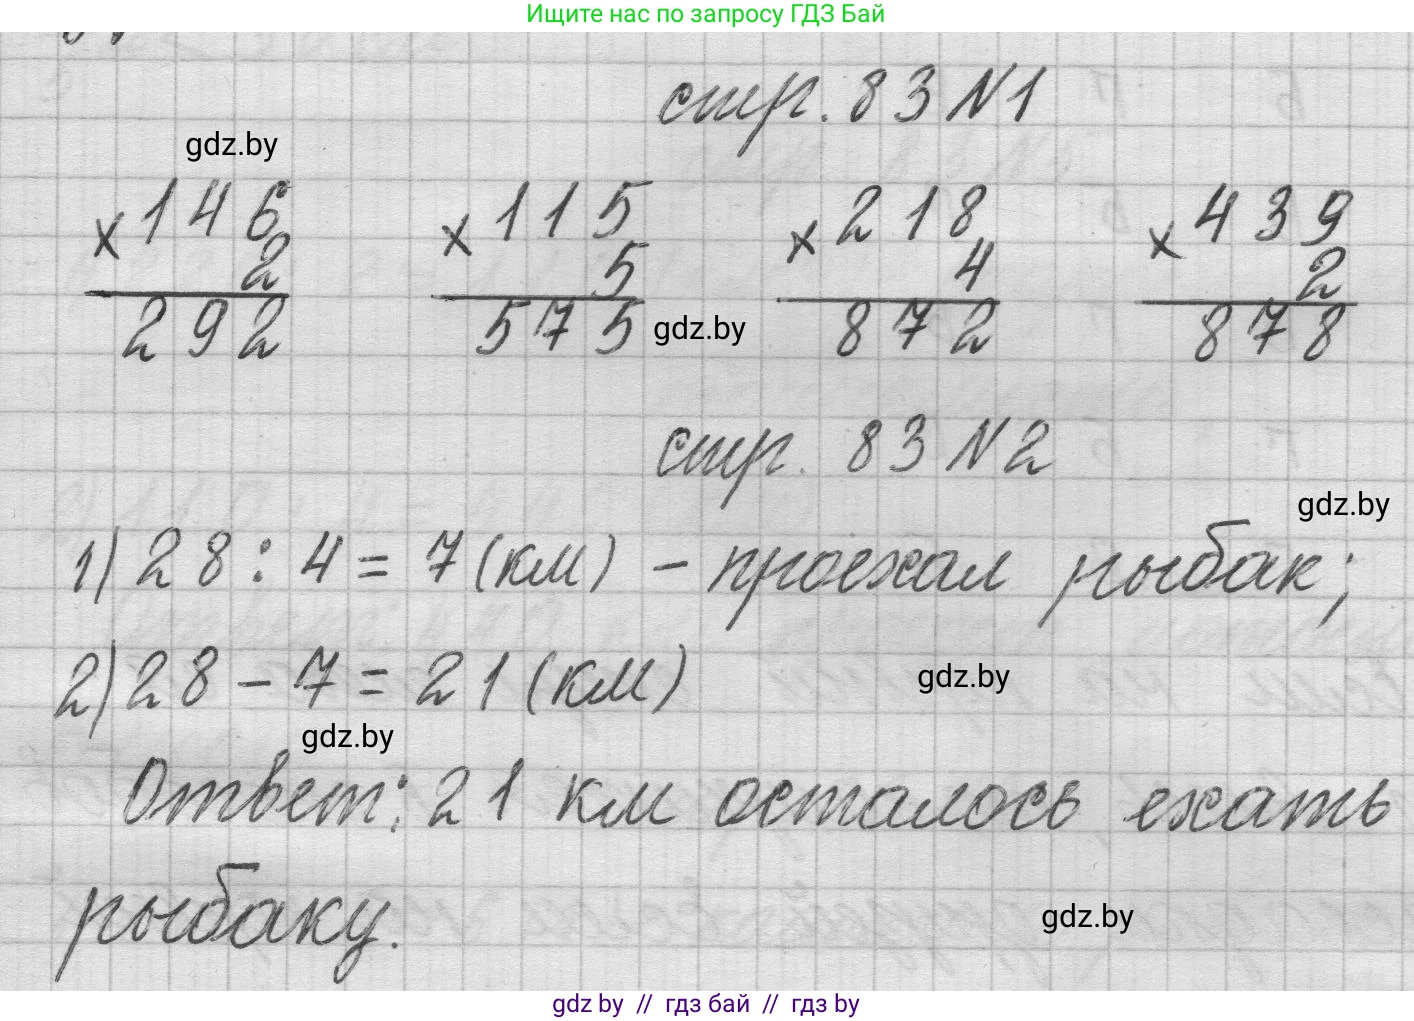 Ищите нас по запросу ГДЗ Бай
стр. 83 N1
gdz.by
×146 ×115 ×218 ×439
2 5 4 2
292 575 872 878
gdz.by
стр. 83 N2
gdz.by
1) 28 : 4 = 7 (км) – проехал рыбак;
2) 28 – 7 = 21 (км)
gdz.by
gdz.by
Ответ: 21 км осталось ехать
рыбаку.
gdz.by
gdz by // гдз бай // гдз by